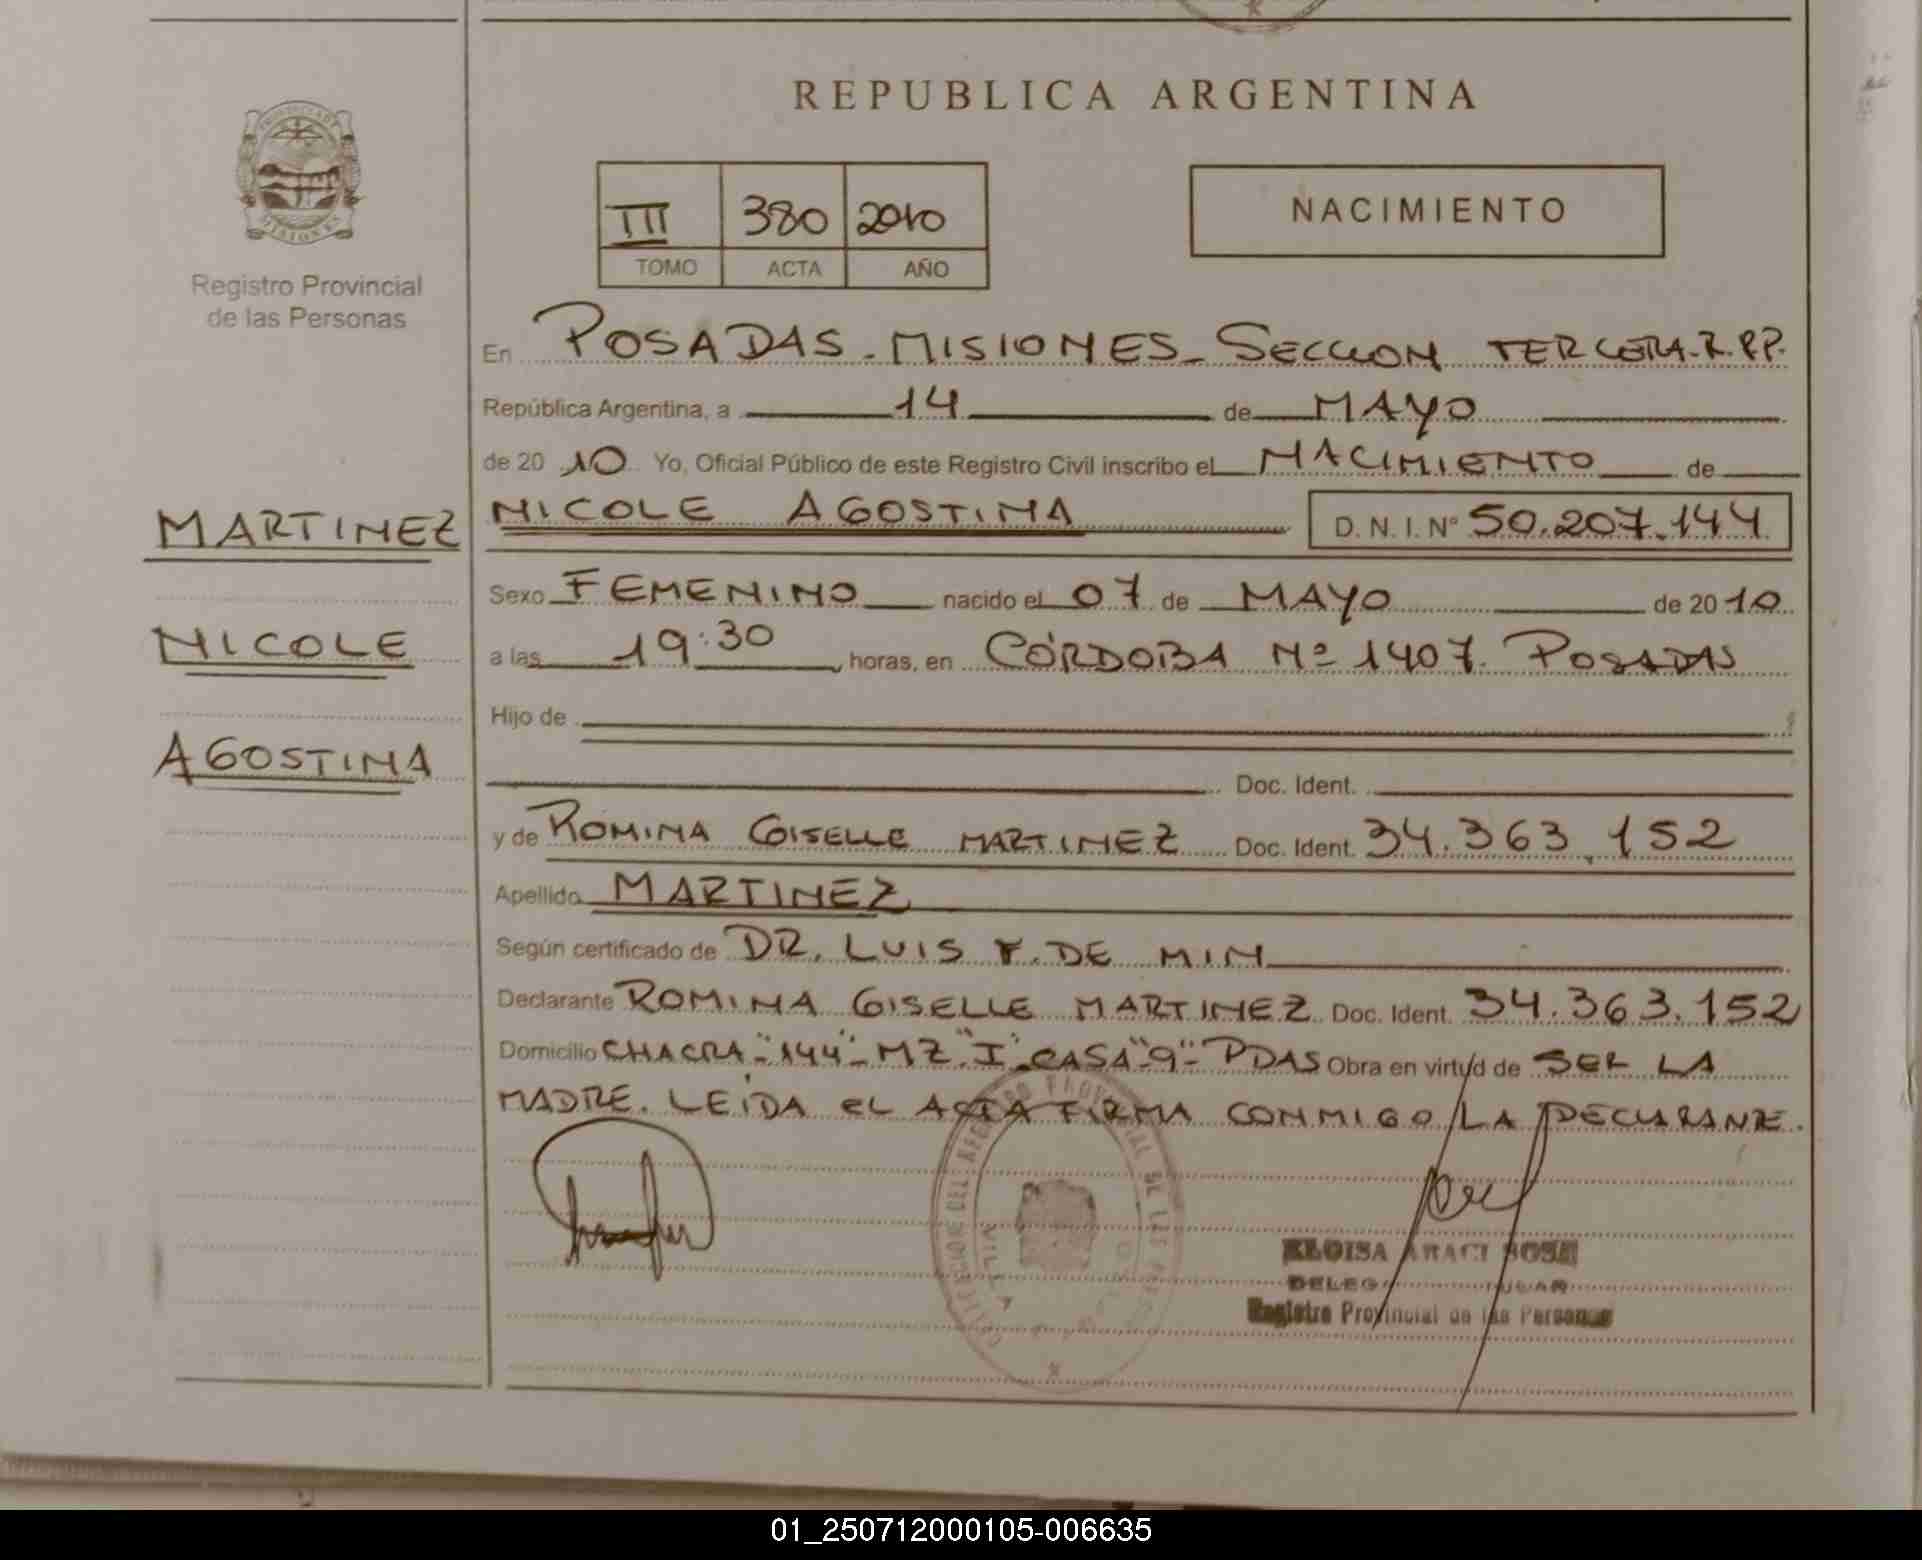 REPUBLICA ARGENTINA
PROVINCIA DE
MISIONES
Registro Provincial
de las Personas
III 380 2010
TOMO ACTA AÑO
NACIMIENTO
En POSADAS - MISIONES - SECCION TERCERA - R.P.P.
República Argentina, a 14 de MAYO
de 20 10 Yo, Oficial Público de este Registro Civil inscribo el NACIMIENTO de
MARTINEZ
NICOLE AGOSTINA D. N. I. Nº 50.207.144
Sexo FEMENINO nacido el 07 de MAYO de 20 10
NICOLE
a las 19:30 horas, en CÓRDOBA Nº 1407. POSADAS
Hijo de
AGOSTINA
Doc. Ident.
y de ROMINA GISELLE MARTINEZ Doc. Ident. 34.363.152
Apellido MARTINEZ
Según certificado de DR. LUIS F. DE MIN
Declarante ROMINA GISELLE MARTINEZ Doc. Ident. 34.363.152
Domicilio CHACRA "144" - MZ "I" CASA "9" - PDAS Obra en virtud de SER LA
MADRE. LEÍDA EL ACTA FIRMA CONMIGO LA DECLARANTE.
ELOISA ARACI SOSA
Registro Provincial de las Personas
01_250712000105-006635